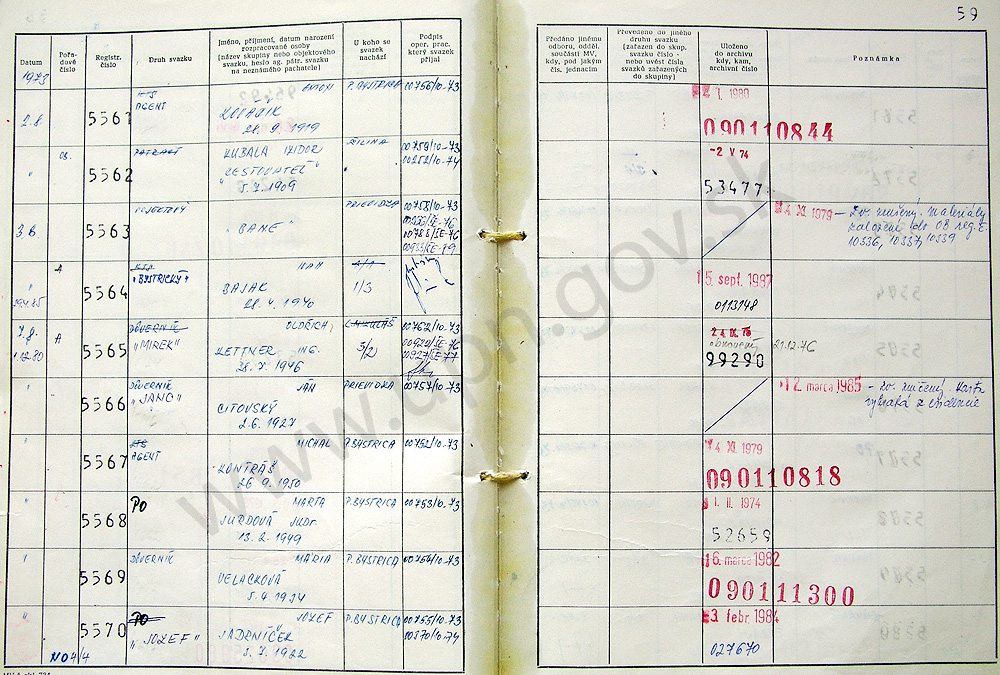 59
Datum
Pořadové číslo
Registr. číslo
Druh svazku
Jméno, příjmení, datum narození rozpracované osoby
[název skupiny nebo objektového svazku, heslo ag. pátr. svazku na neznámého pachatele]
U koho se svazek nachází
Podpis oper. prac. který svazek přijal
Předáno jinému odboru, odděl. součásti MV, kdy, pod jakým čís. jednacím
Převedeno do jiného druhu svazku [zařazen do skup. svazku číslo - nebo uvést čísla svazků zařazených do skupiny]
Uloženo do archivu kdy, kam, archivní číslo
Poznámka
1973
2.8
5561
KTS
AGENT
ANTON
KOVÁČIK
28. 9. 1919
P. BYSTRICA
00756/10-73
I. 1980
090110844
03.
"
5562
KUBALA IZIDOR
"CESTOVATEĽ"
5. 7. 1909
ŽILINA
00759/10-73
-2 V 74
53477
3.8
5563
OBJEKTOVÝ
"BANE"
PRIEVIDZA
00758/10-73
XI. 1979
- Zv. zničený. Materiály
založené do 08 reg. č.
10336, 10337, 10339
A
"
5564
"BYSTRICKÝ"
IVAN
BAJAK
28. 4. 1940
1/3
15. sept. 1987
0113148
7. 8.
1.12.80
A
5565
DÔVERNÍK
"MIREK"
OLDŘICH
KETTNER ING.
1946
3/2
00762/10-73
obnovený 21.12.76
99290
"
5566
DÔVERNÍK
"JANO"
JÁN
CITOVSKÝ
2. 6. 1927
PRIEVIDZA
00757/10-73
12 marca 1985
- zv. zničený. Karta
vybratá z evidencie
"
5567
KTS
AGENT
MICHAL
KONTRÁŠ
26. 9. 1950
P. BYSTRICA
00752/10-73
4 XI. 1979
090110818
"
5568
PO
MARTA
JURDOVÁ JUDr.
13. 2. 1949
P. BYSTRICA
00753/10-73
1. II. 1974
52659
"
5569
DÔVERNÍK
MÁRIA
VELACKOVÁ
5. 4. 1934
P. BYSTRICA
00754/10-73
6. marca 1982
090111300
"
5570
PO
"JOZEF"
JOZEF
JADRNÍČEK
5. 7. 1922
P. BYSTRICA
00755/10-73
00370/10-74
3. febr. 1984
027670
NO 4/4
www.upn.gov.sk